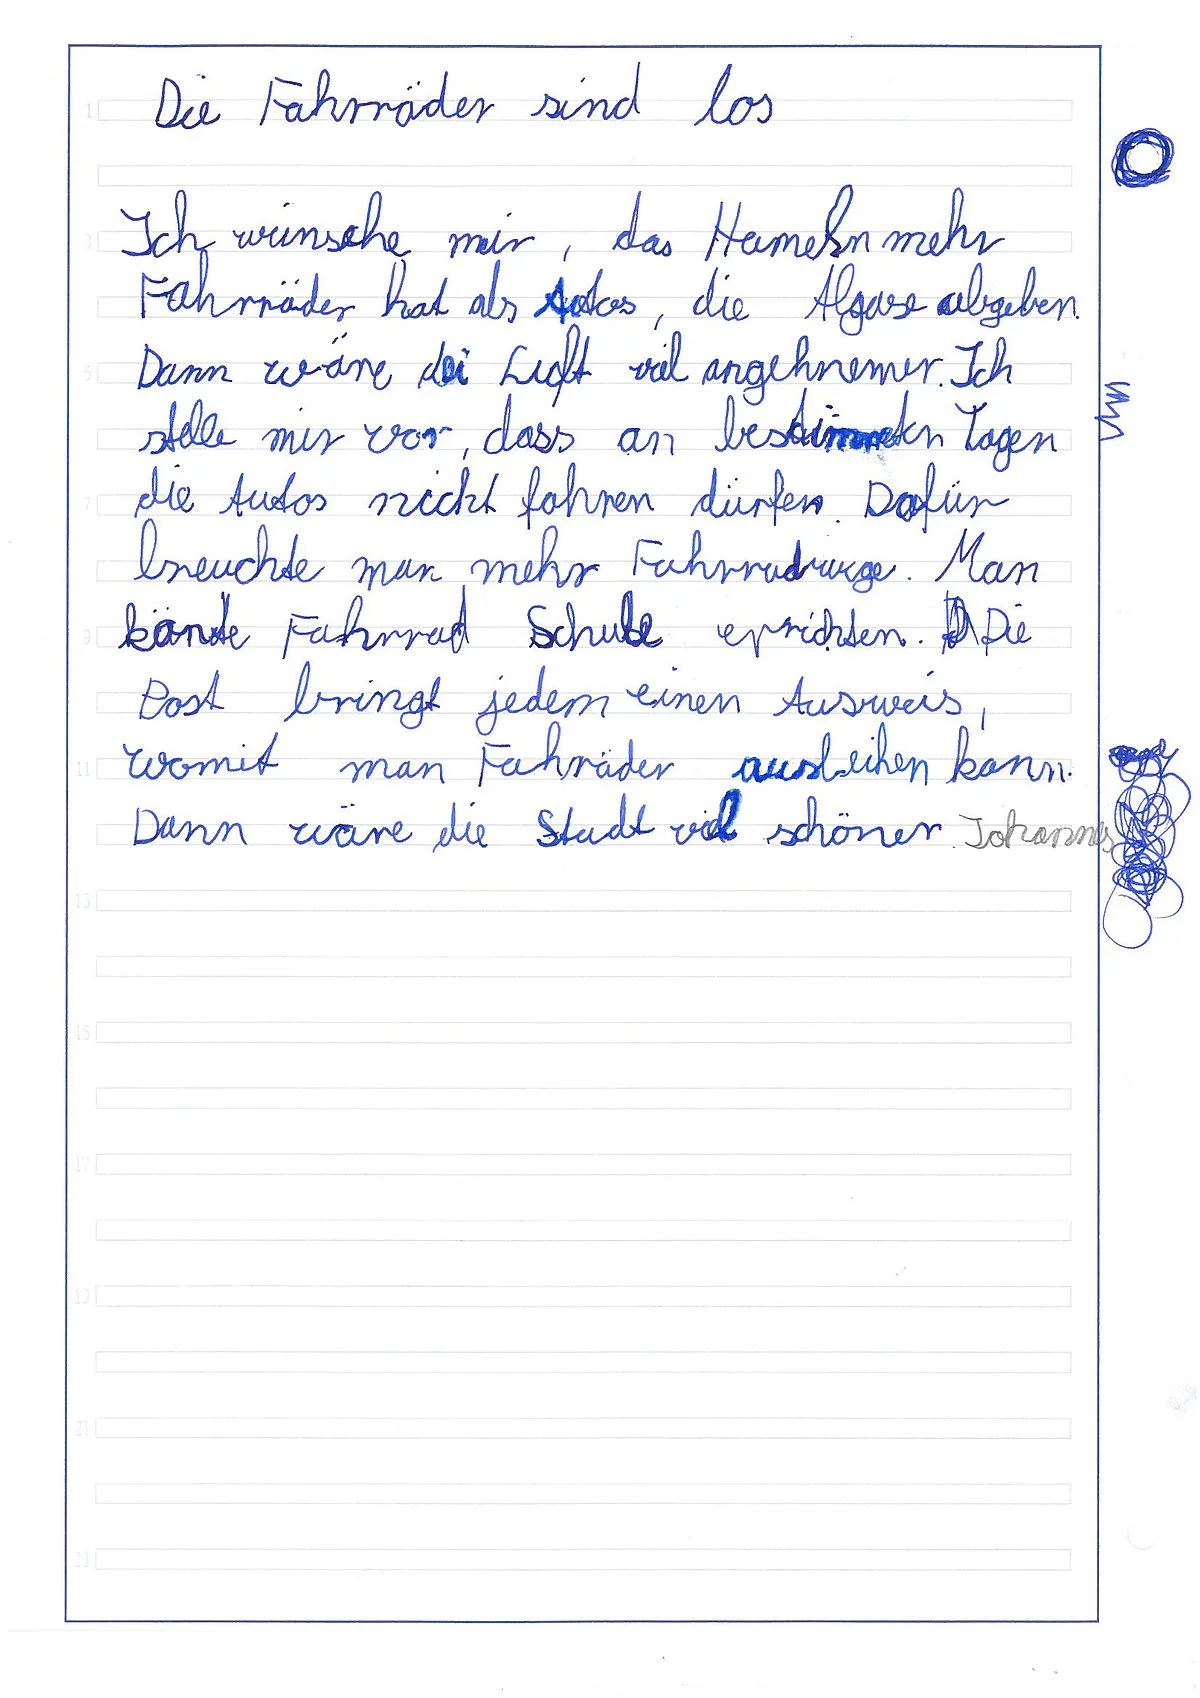 Die Fahrräder sind los
Ich wünsche mir, das Hameln mehr
Fahrräder hat als Autos, die Abgase abgeben.
Dann wäre die Luft viel angehnemer. Ich
stelle mir vor, dass an bestimmten Tagen
die Autos nicht fahren dürfen. Dafür
breuchte man mehr Fahrradwege. Man
könnte Fahrrad Schule errichten. Die
Post bringt jedem einen Ausweis,
womit man Fahräder ausleihen kann.
Dann wäre die Stadt viel schöner. Johannes
1
3
5
7
9
11
13
15
17
19
21
23